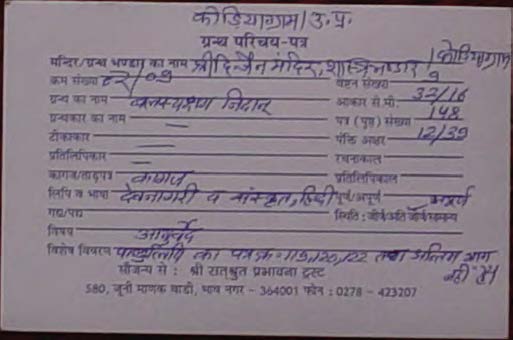 कोडियाग्राम/उ.प्र.
ग्रन्थ परिचय-पत्र
मन्दिर/ग्रन्थ भण्डार का नाम श्री दि. जैन मंदिर, शास्त्रभण्डार / कोडियाग्राम
क्रम संख्या वेष्टन संख्या 9
ग्रन्थ का नाम निदान् आकार से.मी. 33/16
ग्रन्थकार का नाम — पत्र (पृष्ठ) संख्या 148
टीकाकार — पंक्ति अक्षर 12/39
प्रतिलिपिकार — रचनाकाल
कागज/ताड़पत्र कागज प्रतिलिपिकाल
लिपि व भाषा देवनागरी व संस्कृत, हिंदी पूर्ण/अपूर्ण अपूर्ण
गद्य/पद्य स्थिति : जीर्ण/अति जीर्ण/सामान्य
विषय आयुर्वेद
विशेष विवरण पाण्डुलिपि का पत्र क्र. 119,120,122 तथा अन्तिम भाग नहीं है।
सौजन्य से : श्री सतश्रुत प्रभावना ट्रस्ट
580, जूनी माणक वाडी, भाव नगर - 364001 फोन : 0278 - 423207